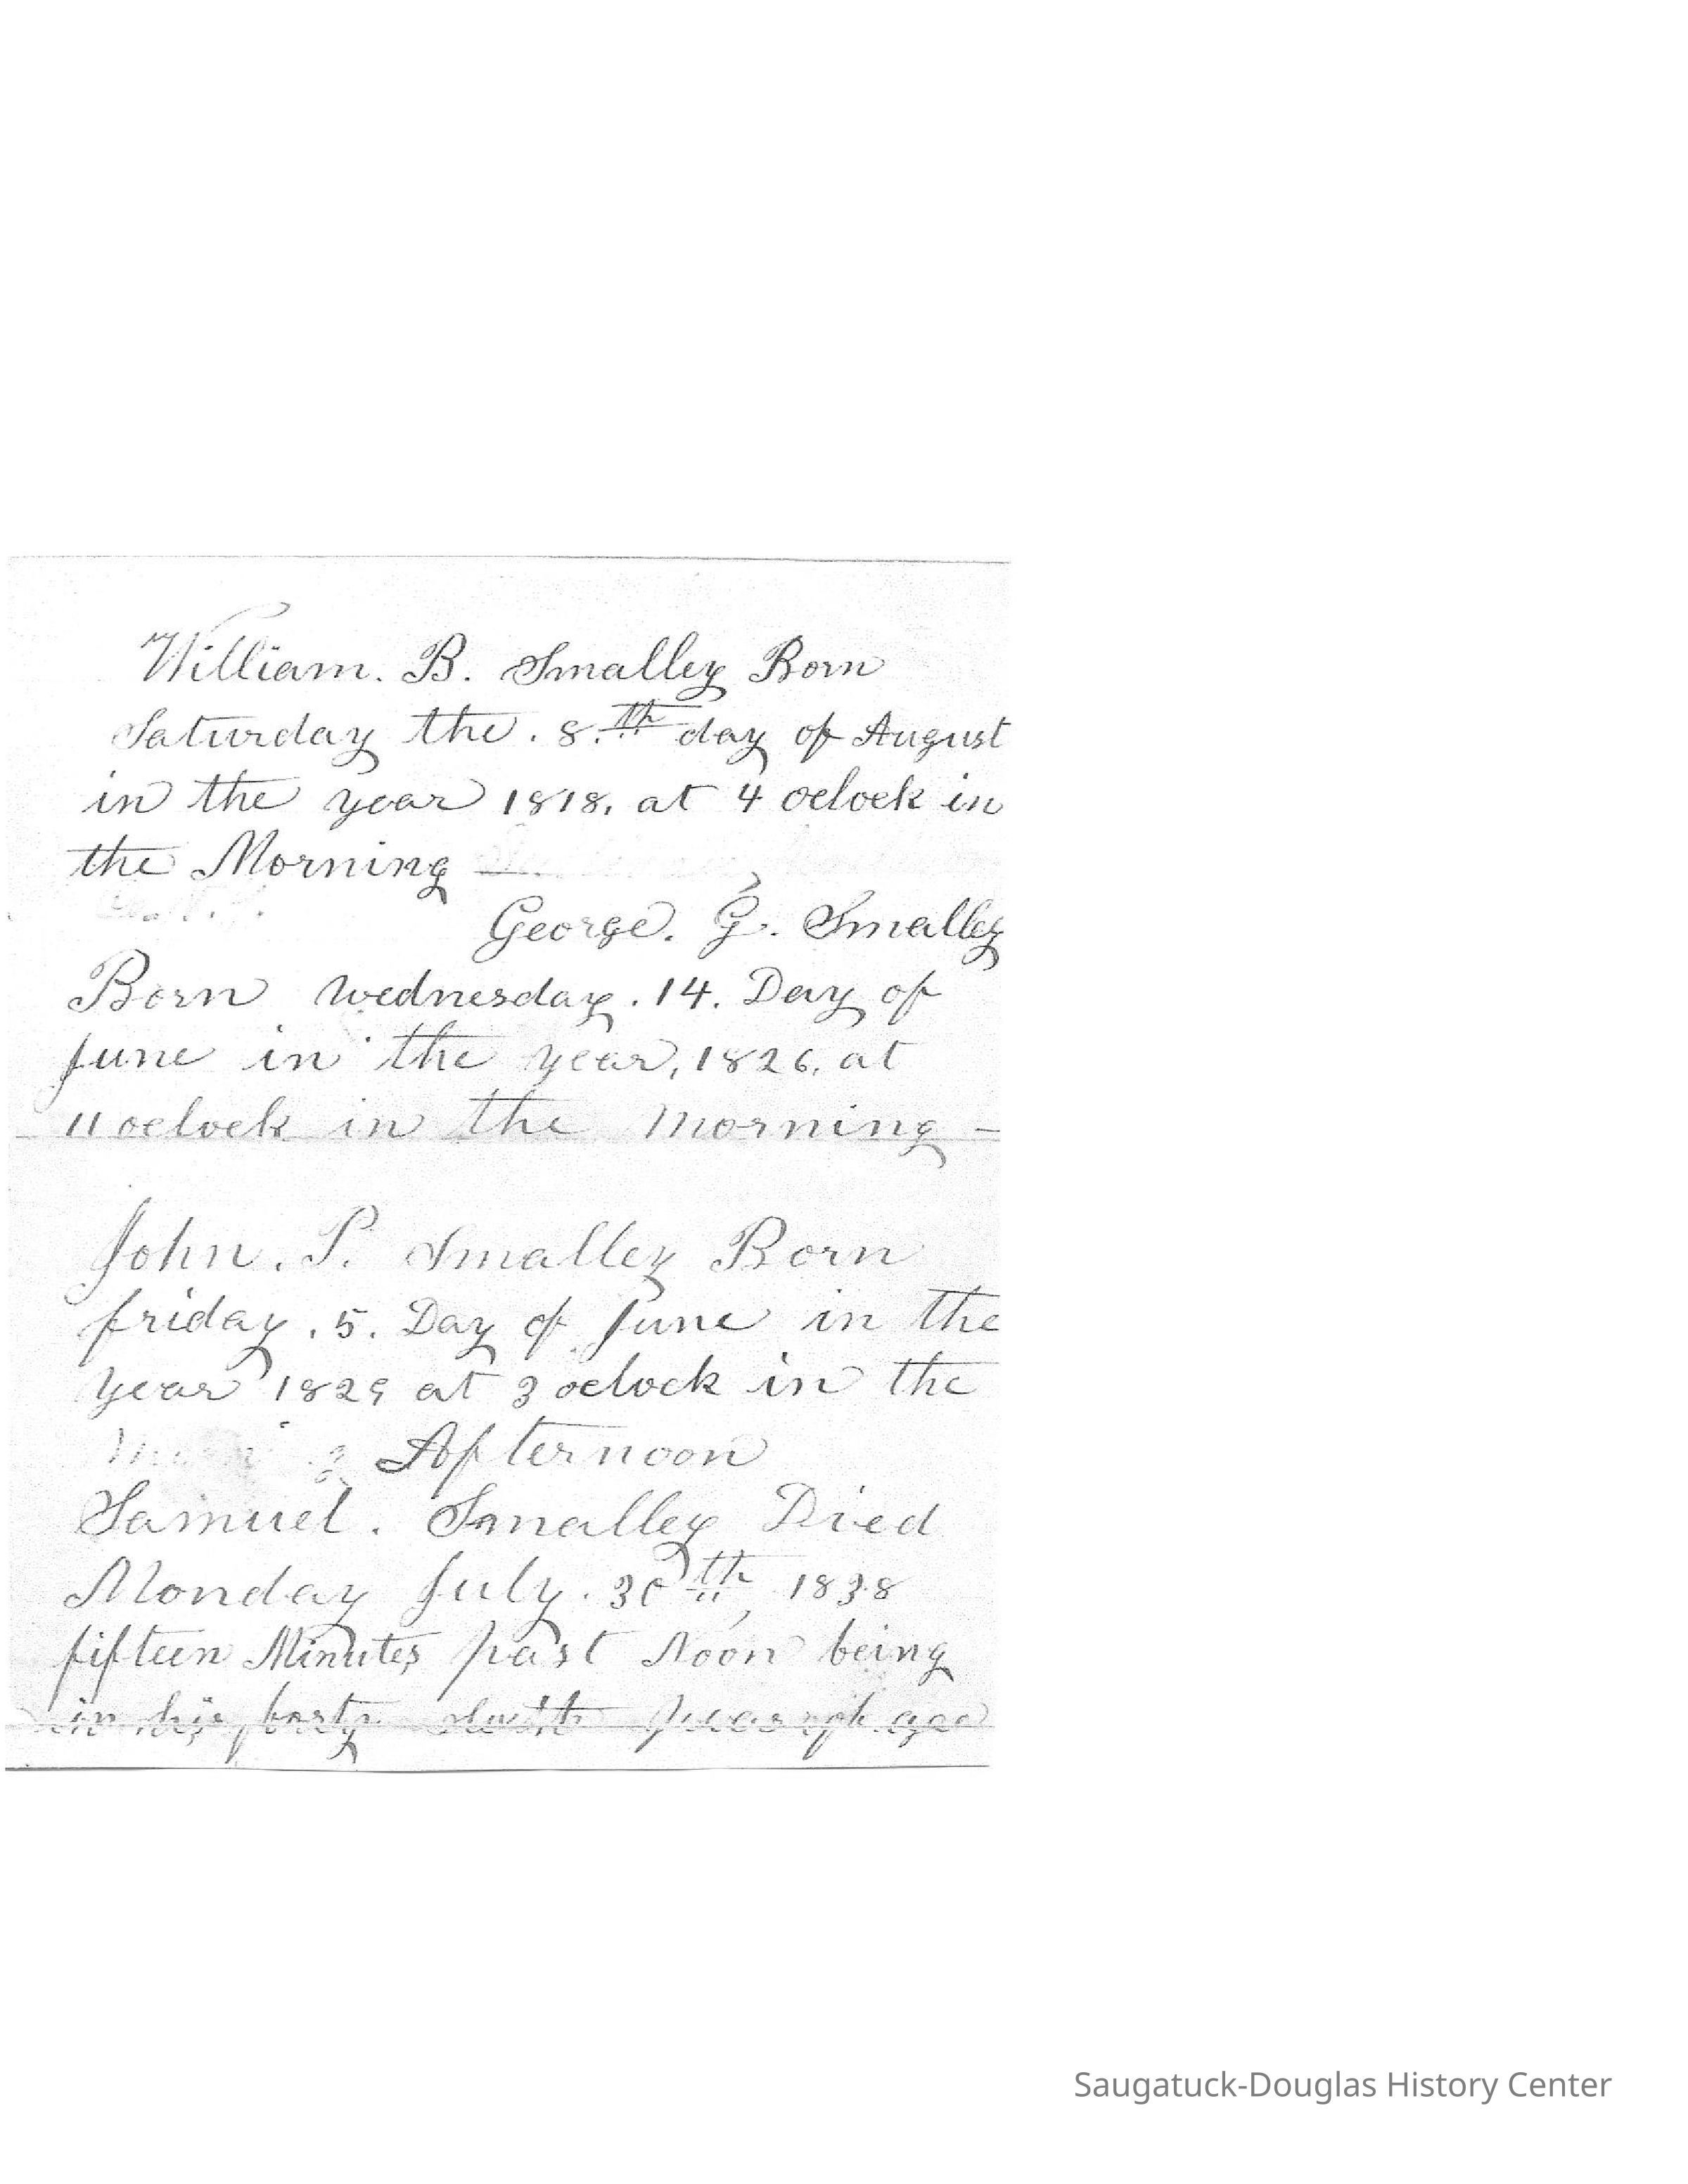 William. B. Smalley Born
Saturday the. 8.th day of August
in the year 1818, at 4 oclock in
the Morning —
George. G. Smalley
Born Wednesday. 14. Day of
June in the year, 1826, at
11 oclock in the Morning —
John. P. Smalley Born
friday. 5. Day of June in the
year 1829 at 3 oclock in the
Afternoon
Samuel. Smalley Died
Monday July. 30th, 1838
fifteen Minutes past Noon being
in his forty year of age
Saugatuck-Douglas History Center